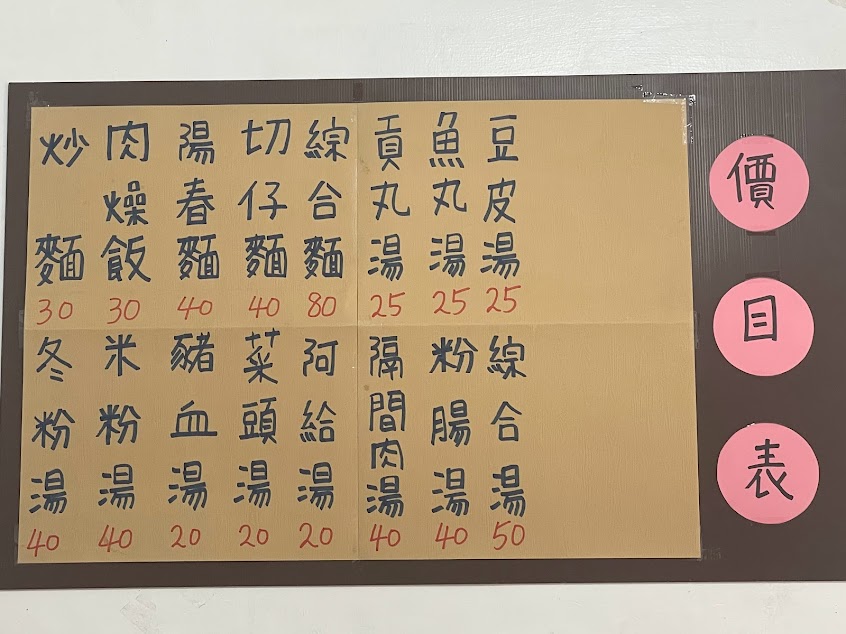 價目表
豆皮湯 25
魚丸湯 25
貢丸湯 25
綜合麵 80
切仔麵 40
陽春麵 40
肉燥飯 30
炒麵 30
綜合湯 50
粉腸湯 40
隔間肉湯 40
阿給湯 20
菜頭湯 20
豬血湯 20
米粉湯 40
冬粉湯 40